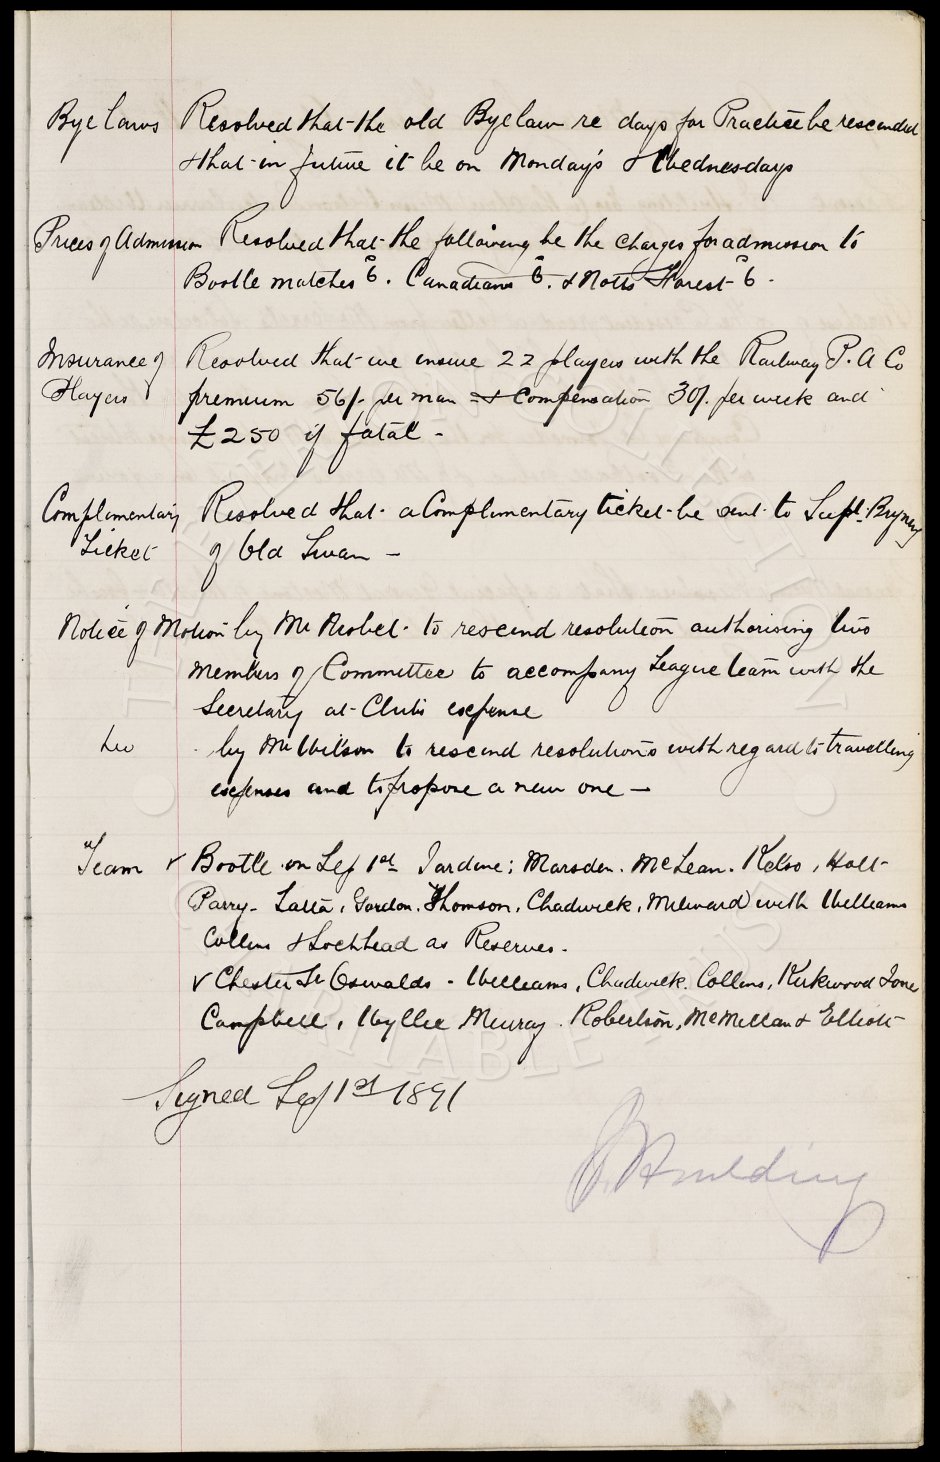 Bye laws Resolved that the old Byelaw re days for Practice be rescinded
& that in future it be on Monday's & Wednesdays
Prices of Admission Resolved that the following be the charges for admission to
Bootle matches 6d. Canadians 6d. & Notts Forest 6d.
Insurance of Players Resolved that we insure 22 players with the Railway P. A Co
premium 56/- per man & Compensation 30/- per week and
£250 if fatal -
Complimentary Ticket Resolved that a Complimentary ticket be sent to Supt.
of Old Swan -
Notice of Motion by Mr to rescind resolution authorising two
members of Committee to accompany League team with the
Secretary at Clubs expense
Do by Mr Wilson to rescind resolutions with regard to travelling
expenses and to propose a new one -
Team v Bootle on Sep 1st Jardine; Marsden. McLean. Kelso, Holt
Parry. Latta, Gordon. Thomson, Chadwick, Milward with Williams
Collins & Lochhead as Reserves.
v Chester St Oswalds - Williams, Chadwick. Collins, Kirkwood Jone
Campbell, Wyllie Murray. Robertson, McMillan & Elliott
Signed Sep 1st 1891